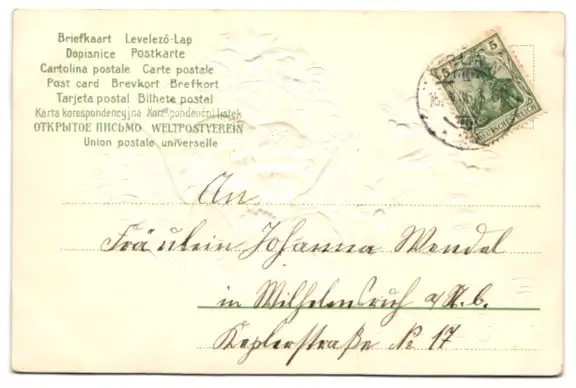 Briefkaart Levelező-Lap
Dopisnice Postkarte
Cartolina postale Carte postale
Post card Brevkort Brefkort
Tarjeta postal Bilhete postal
Karta korespondencyjna Korespondenční lístek
ОТКРЫТОЕ ПИСЬМО WELTPOSTVEREIN
Union postale universelle
5
DEUTSCHES REICH
An
Fräulein Johanna Wendel
in Wilhelmsruh a/N.b.
Keplerstraße No 17